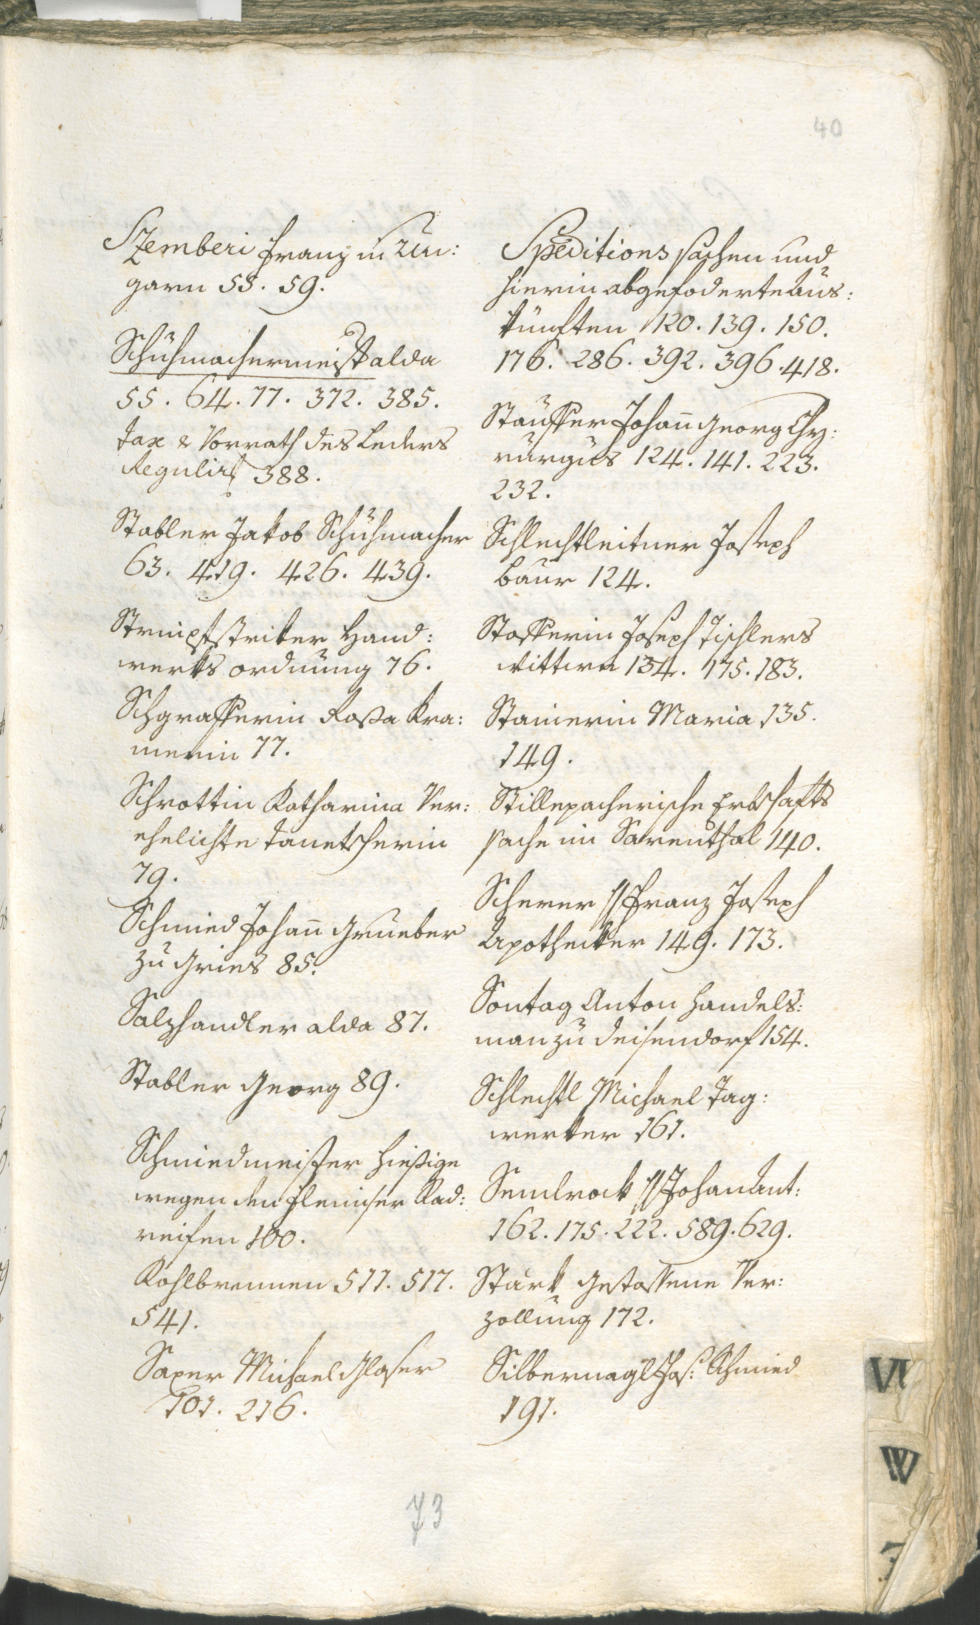 40
Szemberi Franz in Un:
garn 55. 59.
Schuhmachermeist alda
55. 64. 77. 372. 385.
Tax & Vorrath des Leders
Regulirt 388.
Stabler Jakob Schuhmacher
63. 419. 426. 439.
Strumpfstriker Hand:
werks ordnung 76.
Schgrafferin Rosa Kra:
merin 77.
Schrottin Katharina Ver:
ehelichte Tanetscherin
79.
Schmied Johan̄ Grueber
zu Gries 85.
Salzhandler alda 87.
Stabler Georg 89.
Schmiedmeister hiesige
wegen den Fleimser Rad:
reifen 100.
Kohlbrennen 511. 517.
541.
Saxer Michael Glaser
101. 216.
Speditions sachen und
hierin abgefoderte Aus:
künften 120. 139. 150.
176. 286. 392. 396. 418.
Stauffer Johan̄ Georg Chy:
rurgus 124. 141. 223.
232.
Schlechtleitner Joseph
Baur 124.
Stofferin Joseph Tischlers
Wittwe 134. 175. 183.
Stainerin Maria 135.
149.
Stillepacherische Erbschafts
sache im Sarenthal 140.
Scherer Franz Joseph
Apotheker 149. 173.
Sontag Anton Handels:
man zu Deisendorf 154.
Schlechtl Michael Tag:
werker 161.
Sendrock Johan Ant:
162. 175. 222. 589. 629.
Stark gestossene Ver:
zollung 172.
Silbernagl Jos: Schmied
191.
VI
W
73